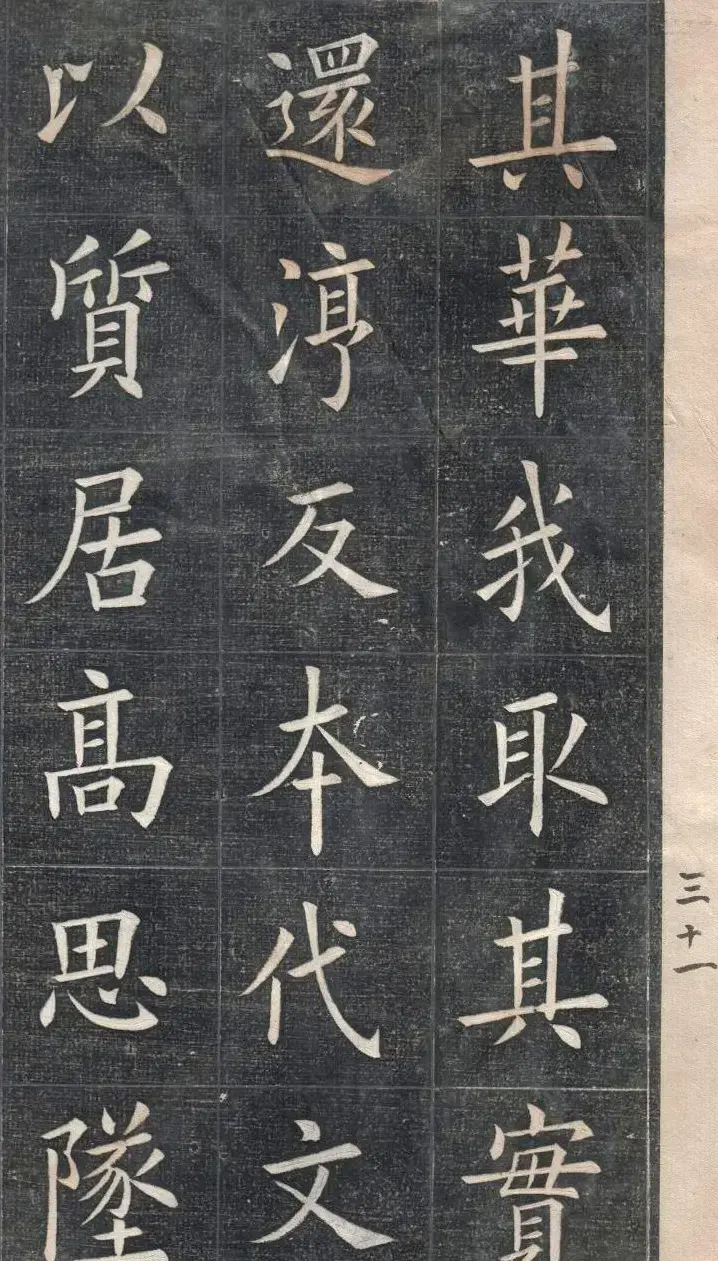 三十一
其華我取其實
還淳反本代文
以質居髙思墜